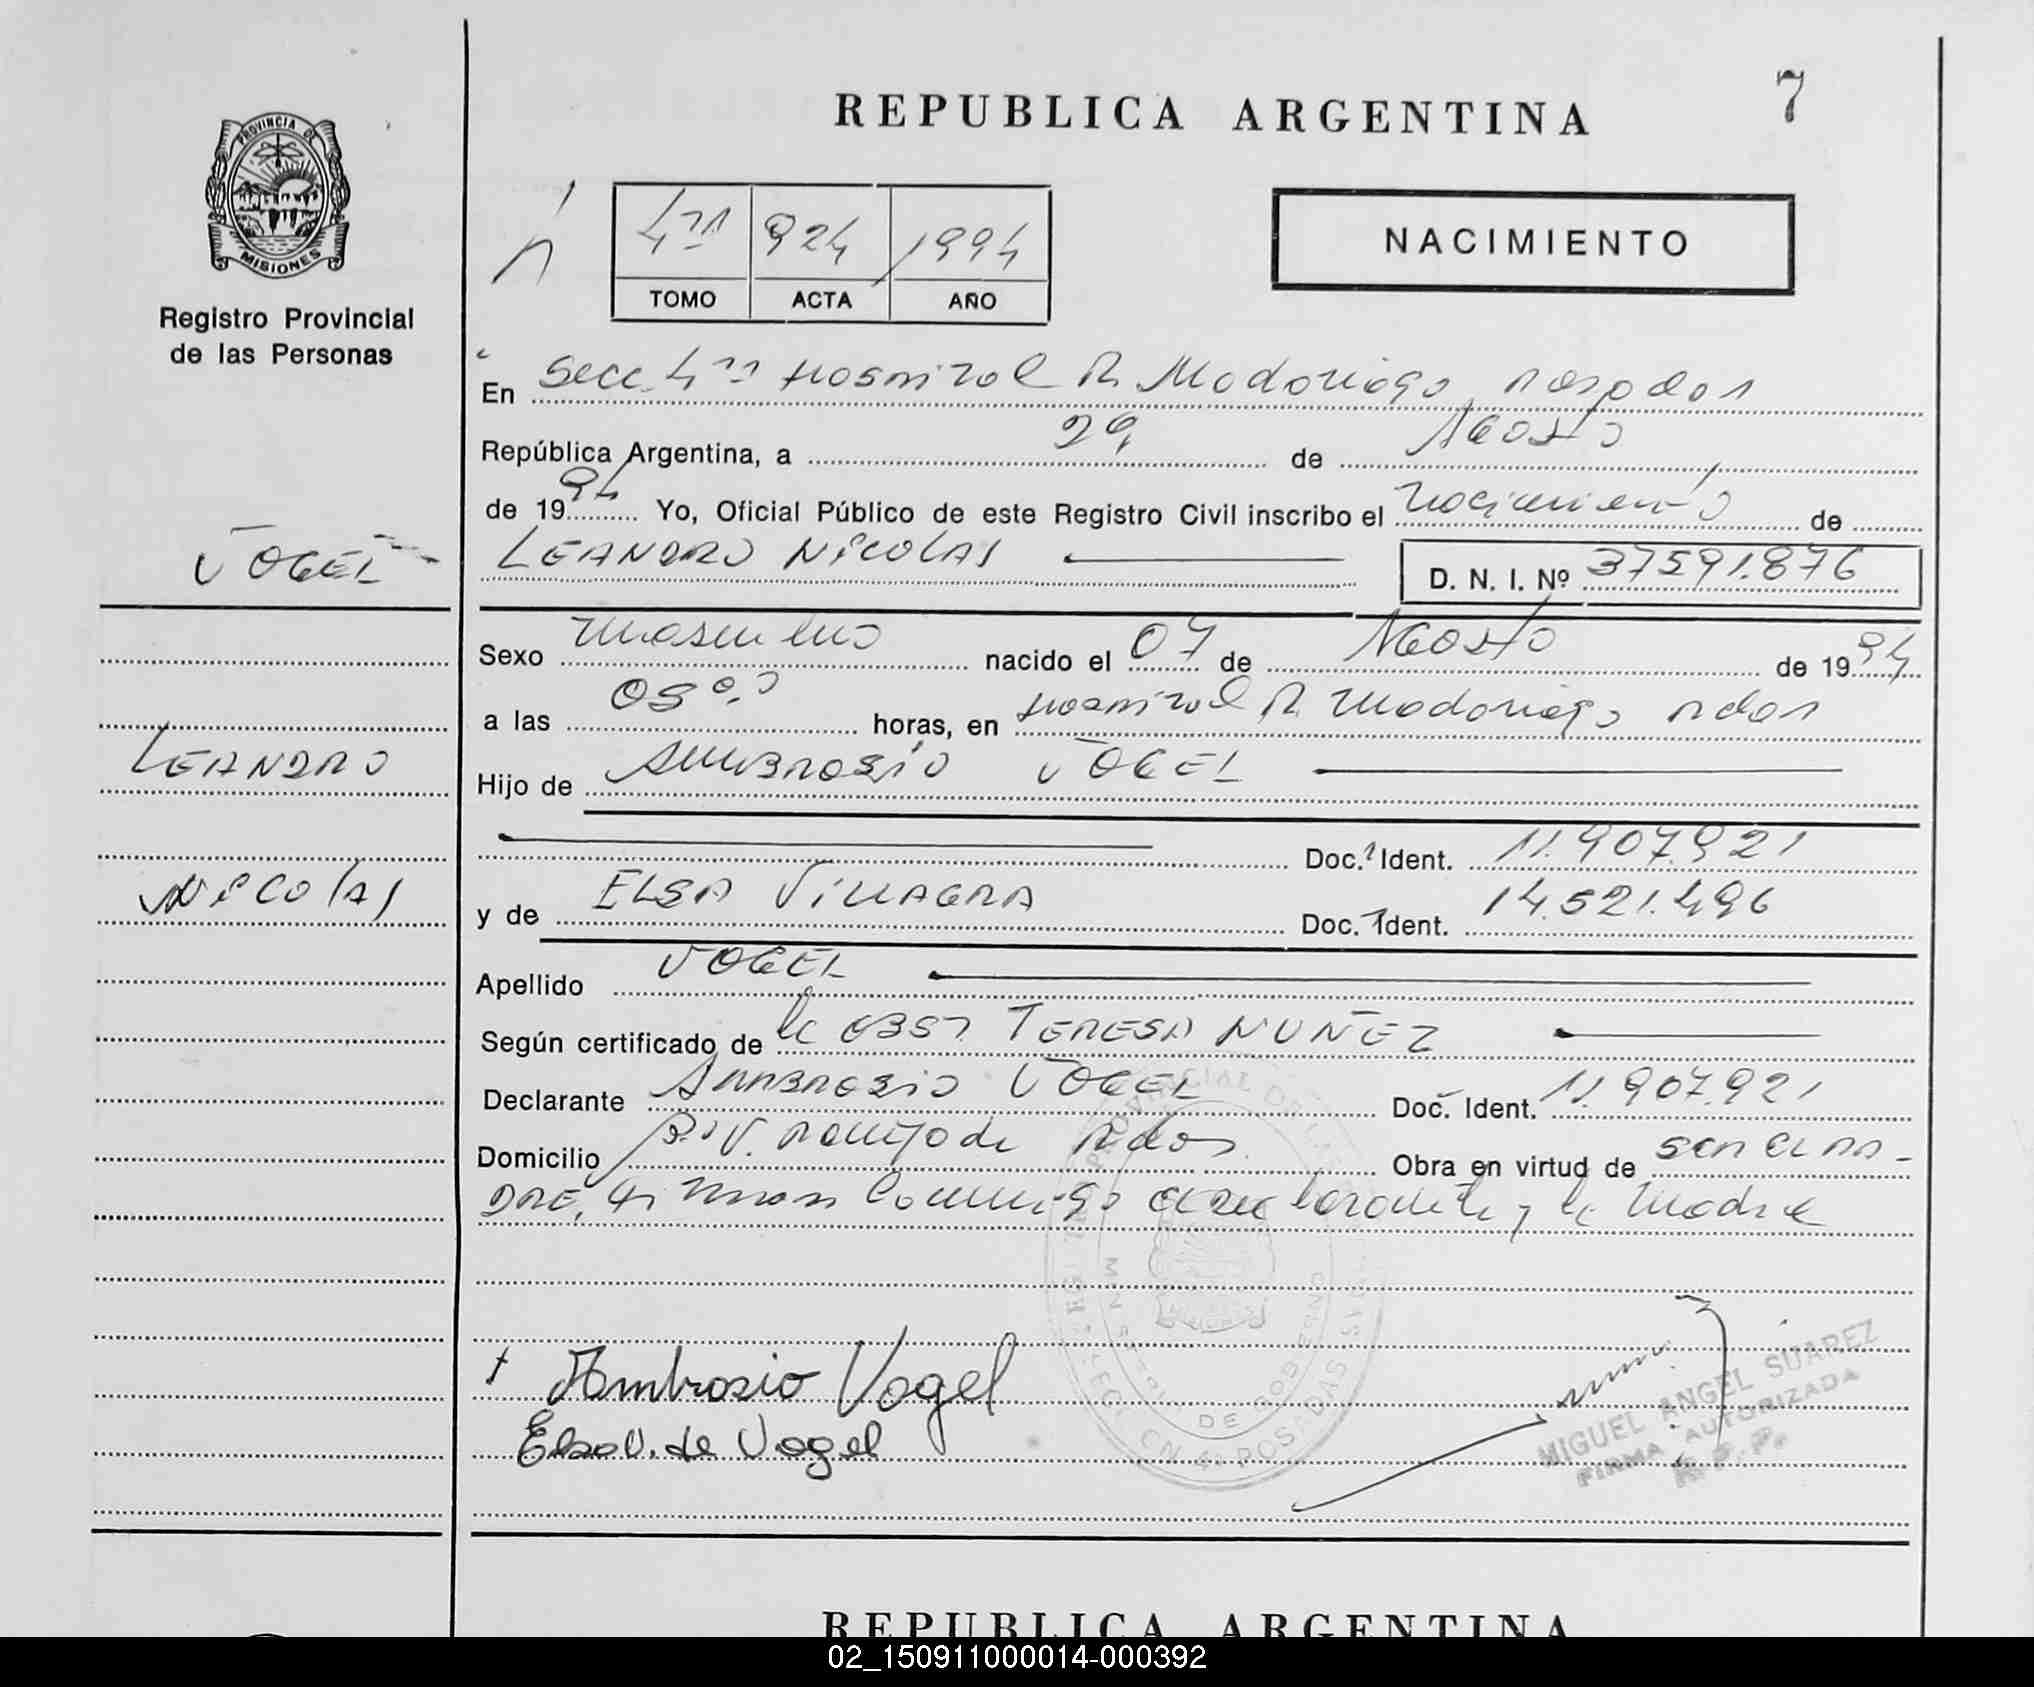 7
REPUBLICA ARGENTINA
PROVINCIA DE
MISIONES
Registro Provincial
de las Personas
4ta 924 1994
TOMO ACTA AÑO
NACIMIENTO
En Secc. 4ta Hospital R. Madariaga Posadas
República Argentina, a 29 de Agosto
de 1994 Yo, Oficial Público de este Registro Civil inscribo el nacimiento de
LEANDRO NICOLAS D. N. I. Nº 37591.876
VOGEL
LEANDRO
NICOLAS
Sexo masculino nacido el 07 de Agosto de 1994
a las horas, en Hospital R. Madariaga Pdas
Hijo de AMBROSIO VOGEL
Doc. Ident. 11.907.921
y de ELSA VILLAGRA Doc. Ident. 14.521.496
Apellido VOGEL
Según certificado de la OBST TERESA NUÑEZ
Declarante AMBROSIO VOGEL Doc. Ident. 11.907.921
Domicilio Pdas. Obra en virtud de ser el PA-
DRE, firman conmigo el declarante y la madre
Ambrosio Vogel
Elsa V. de Vogel
MIGUEL ANGEL SUAREZ
FIRMA AUTORIZADA
R. P. P.
REPUBLICA ARGENTINA
02_150911000014-000392